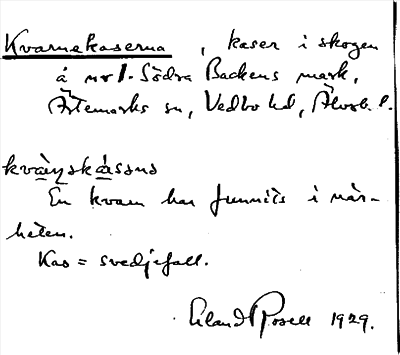 Kvarnekaserna, kaser i skogen
å nr 1. Södra Backens mark,
Ärtemarks sn, Vedbo hd, Älvsb. l.
En kvarn har funnits i när-
heten.
Kas = svedjefall.
Erland Rosell 1929.